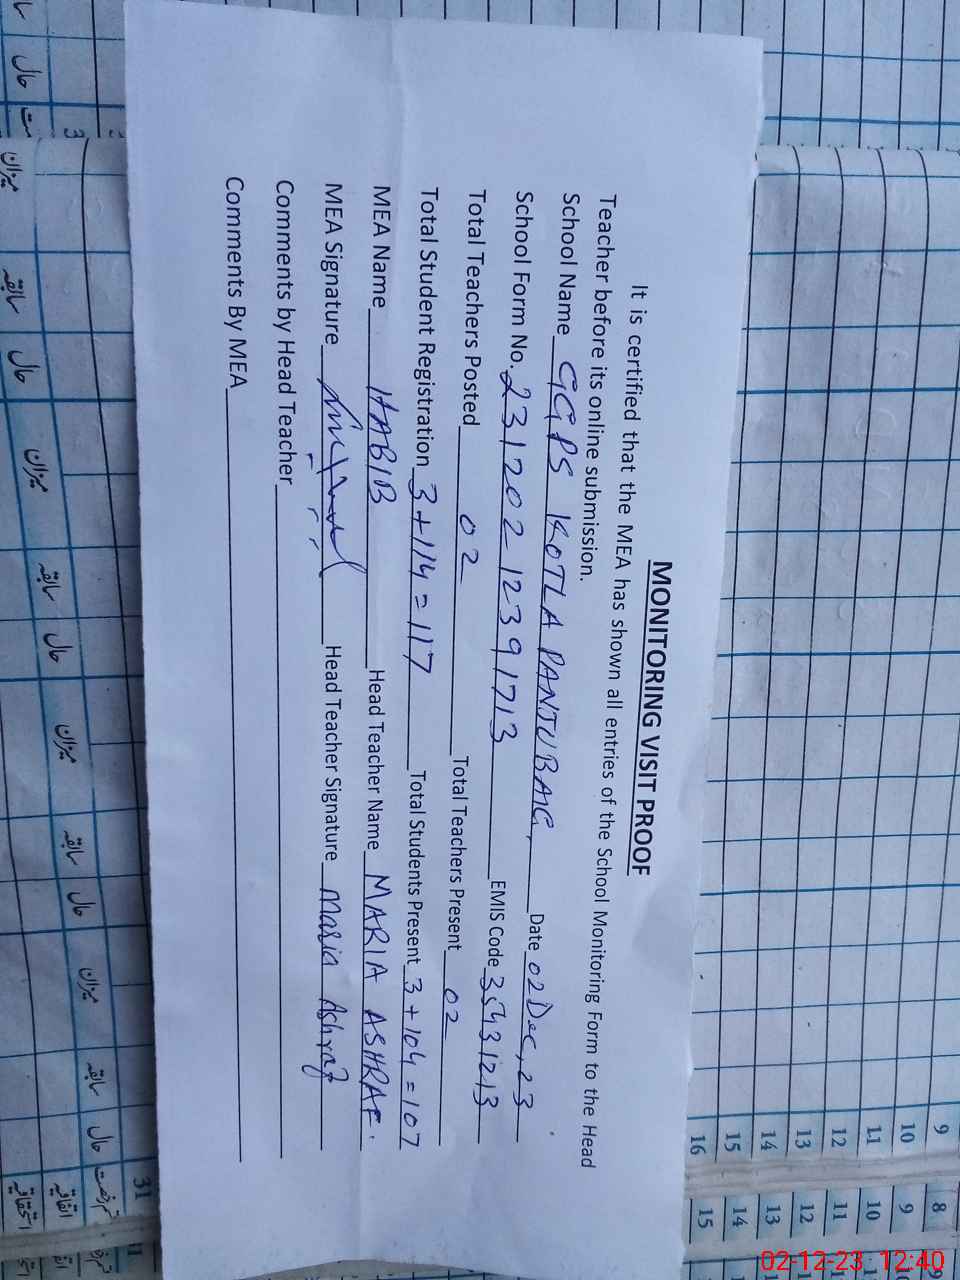 MONITORING VISIT PROOF
It is certified that the MEA has shown all entries of the School Monitoring Form to the Head
Teacher before its online submission.
School Name GGPS KOTLA PANJUBAIG, Date 02 Dec, 23
School Form No. 231202 12391713 EMIS Code 35431213
Total Teachers Posted 02 Total Teachers Present 02
Total Student Registration 3+114=117 Total Students Present 3+104=107
MEA Name HABIB Head Teacher Name MARIA ASHRAF.
MEA Signature Head Teacher Signature Maria Ashraf
Comments by Head Teacher
Comments By MEA
9
10
11
12
13
14
15
16
8
9
10
11
12
13
14
15
31
حال
میزان
سابقہ
حال
میزان
سابقہ
حال
میزان
سابقہ
حال
میزان
سابقہ
حال
اتفاقیہ
استحقاقیہ
02-12-23 12:40